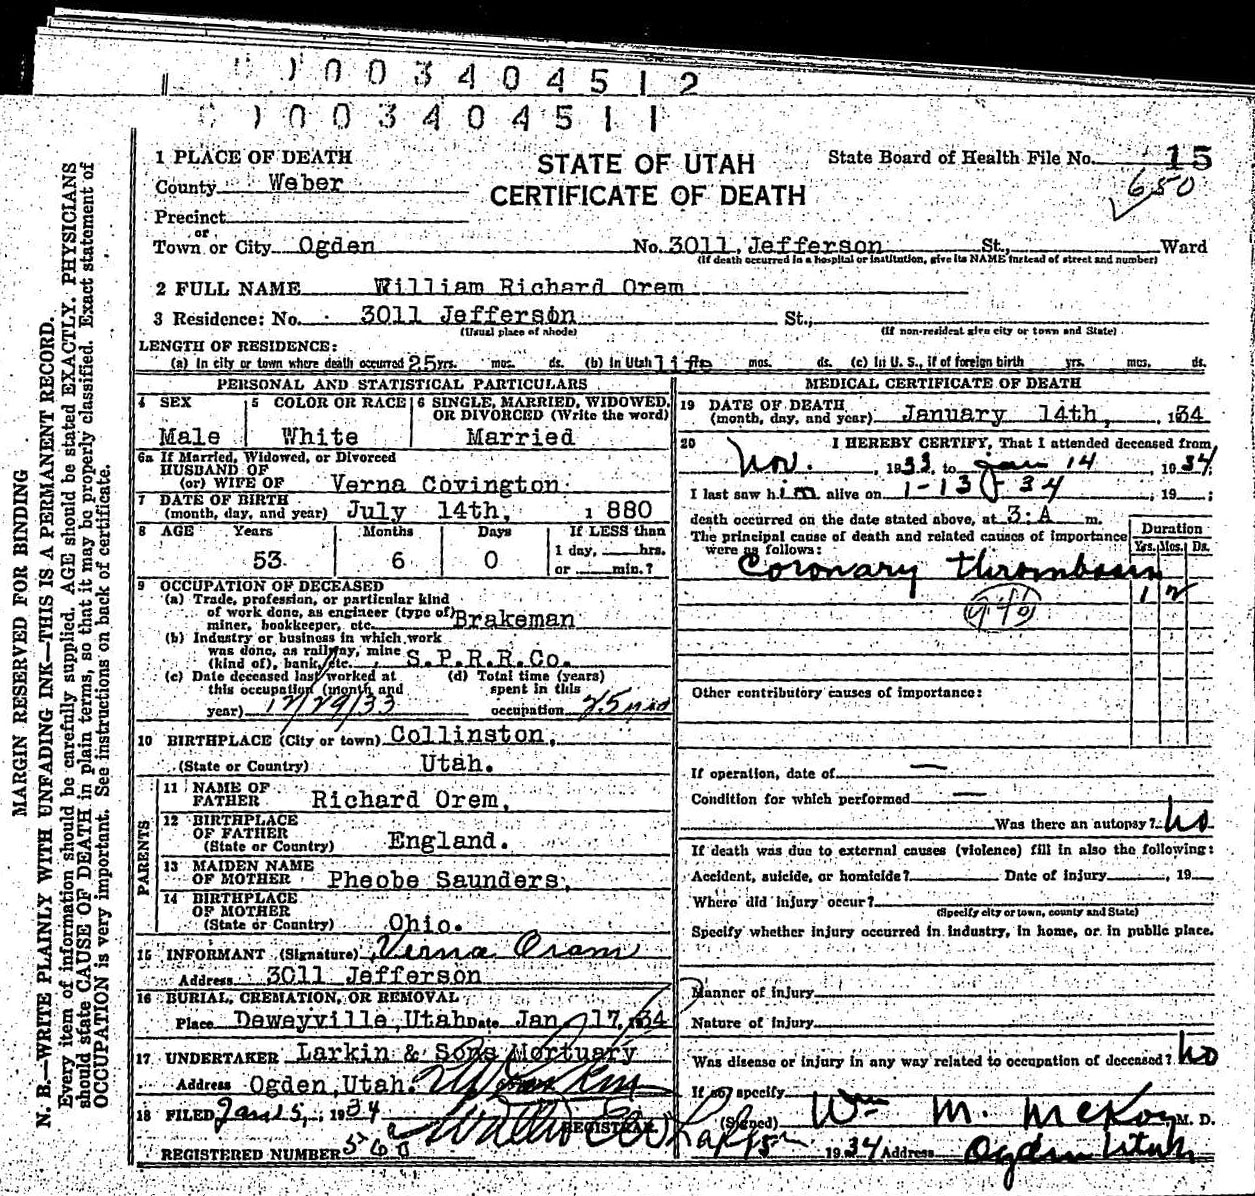 0 0 3 4 0 4 5 1 2
0 0 3 4 0 4 5 1 1
MARGIN RESERVED FOR BINDING
N. B.—WRITE PLAINLY WITH UNFADING INK—THIS IS A PERMANENT RECORD.
Every item of information should be carefully supplied. AGE should be stated EXACTLY. PHYSICIANS
should state CAUSE OF DEATH in plain terms, so that it may be properly classified. Exact statement of
OCCUPATION is very important. See instructions on back of certificate.
STATE OF UTAH
CERTIFICATE OF DEATH
State Board of Health File No. 15
650
1 PLACE OF DEATH
County Weber
Precinct
or
Town or City Ogden No. 3011 Jefferson St., Ward
(If death occurred in a hospital or institution, give its NAME instead of street and number)
2 FULL NAME William Richard Orem
3 Residence: No. 3011 Jefferson St.,
(Usual place of abode) (If non-resident give city or town and State)
LENGTH OF RESIDENCE:
(a) In city or town where death occurred 25 yrs. mos. ds. (b) In Utah life mos. ds. (c) In U. S., if of foreign birth yrs. mos. ds.
PERSONAL AND STATISTICAL PARTICULARS
4 SEX
Male
5 COLOR OR RACE
White
6 SINGLE, MARRIED, WIDOWED,
OR DIVORCED (Write the word)
Married
6a If Married, Widowed, or Divorced
HUSBAND OF
(or) WIFE OF Verna Covington
7 DATE OF BIRTH
(month, day, and year) July 14th, 1880
8 AGE Years Months Days If LESS than
1 day, hrs.
53 6 0 or min.?
9 OCCUPATION OF DECEASED
(a) Trade, profession, or particular kind
of work done, as engineer (type of)
miner, bookkeeper, etc. Brakeman
(b) Industry or business in which work
was done, as railway, mine
(kind of), bank, etc. S.P.R.R.Co.
(c) Date deceased last worked at
this occupation (month and
year) 12/29/33
(d) Total time (years)
spent in this
occupation 25
10 BIRTHPLACE (City or town) Collinston,
(State or Country) Utah.
PARENTS
11 NAME OF
FATHER Richard Orem,
12 BIRTHPLACE
OF FATHER
(State or Country) England.
13 MAIDEN NAME
OF MOTHER Pheobe Saunders,
14 BIRTHPLACE
OF MOTHER
(State or Country) Ohio.
15 INFORMANT (Signature) Verna Oram
Address 3011 Jefferson
16 BURIAL, CREMATION, OR REMOVAL
Place Deweyville, Utah Date Jan 17, 1934
17 UNDERTAKER Larkin & Sons Mortuary
Address Ogden, Utah.
18 FILED Jan 15, 1934
REGISTRAR
REGISTERED NUMBER
MEDICAL CERTIFICATE OF DEATH
19 DATE OF DEATH
(month, day, and year) January 14th, 134
20 I HEREBY CERTIFY, That I attended deceased from
Nov. 1933, to Jan 14 1934;
I last saw him alive on 1-13-34, 19 ;
death occurred on the date stated above, at 3:A m.
The principal cause of death and related causes of importance
were as follows:
Duration
Yrs. Mos. Ds.
Coronary thrombosis
1 2
Other contributory causes of importance:
If operation, date of —
Condition for which performed —
Was there an autopsy? no
If death was due to external causes (violence) fill in also the following:
Accident, suicide, or homicide? Date of injury , 19
Where did injury occur?
(Specify city or town, county and State)
Specify whether injury occurred in industry, in home, or in public place.
Manner of injury
Nature of injury
Was disease or injury in any way related to occupation of deceased? no
If so, specify
(Signed) Wm M. McKay M. D.
1934 Address Ogden Utah